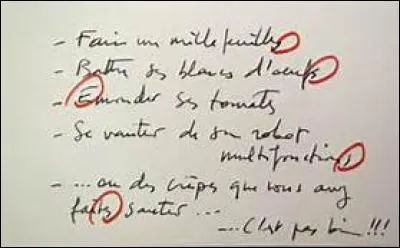 - Faire un millefeuilles
- Battre ses blancs d'oeufs
- Emonder ses tomates
- Se vanter de son robot
multifonctions
- ... ou des crêpes que vous avez
faits sauter ...
... C'est pas bien !!!